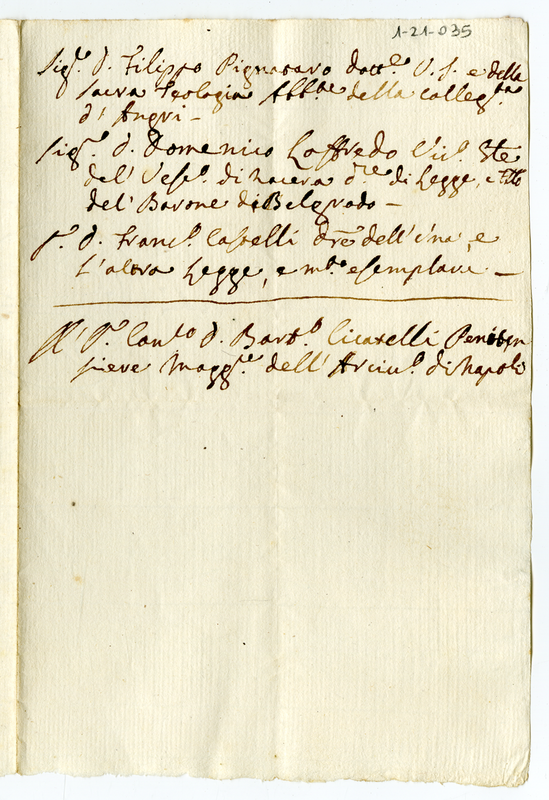 1-21-035
Sig.e d. Filippo Pignataro dott.e U. J. e della
sacra Teologia Abb.e della colleg.ta
d'Angri —
Sig.e d. Domenico Loffredo Vic.o
del' Vesc.o di Nocera d.re di Legge, e
del' Barone di Belgrado —
S.e d. Franc.o Castelli d.re dell'una, e
l'altra Legge, e m.to esemplare —
All' S.e Can.co d. Bart.o Cicarelli Peniten
siere Magg.re dell' Arciv.o di Napoli